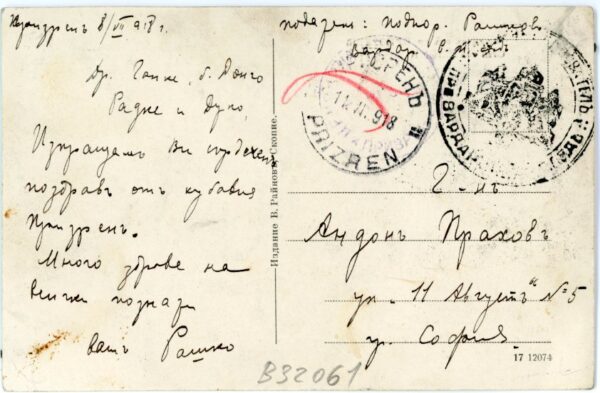 Призренъ 8/VII 918 г.
др. Ганке, б. Дончо
Радке и Дуко,
Изпращамъ Ви сърдеченъ
поздравъ отъ хубавия
Призренъ.
Много здраве на
всички познати
вашъ Рашко
податель: Подпор.
Вардар
ПРИЗРЕНЪ
11.VII.918
PRIZREN
Издание В. Райновъ, Скопие.
Г-нъ
Андонъ Праховъ
ул. "11 Августъ" №5
гр. София.
17 12074
B32061